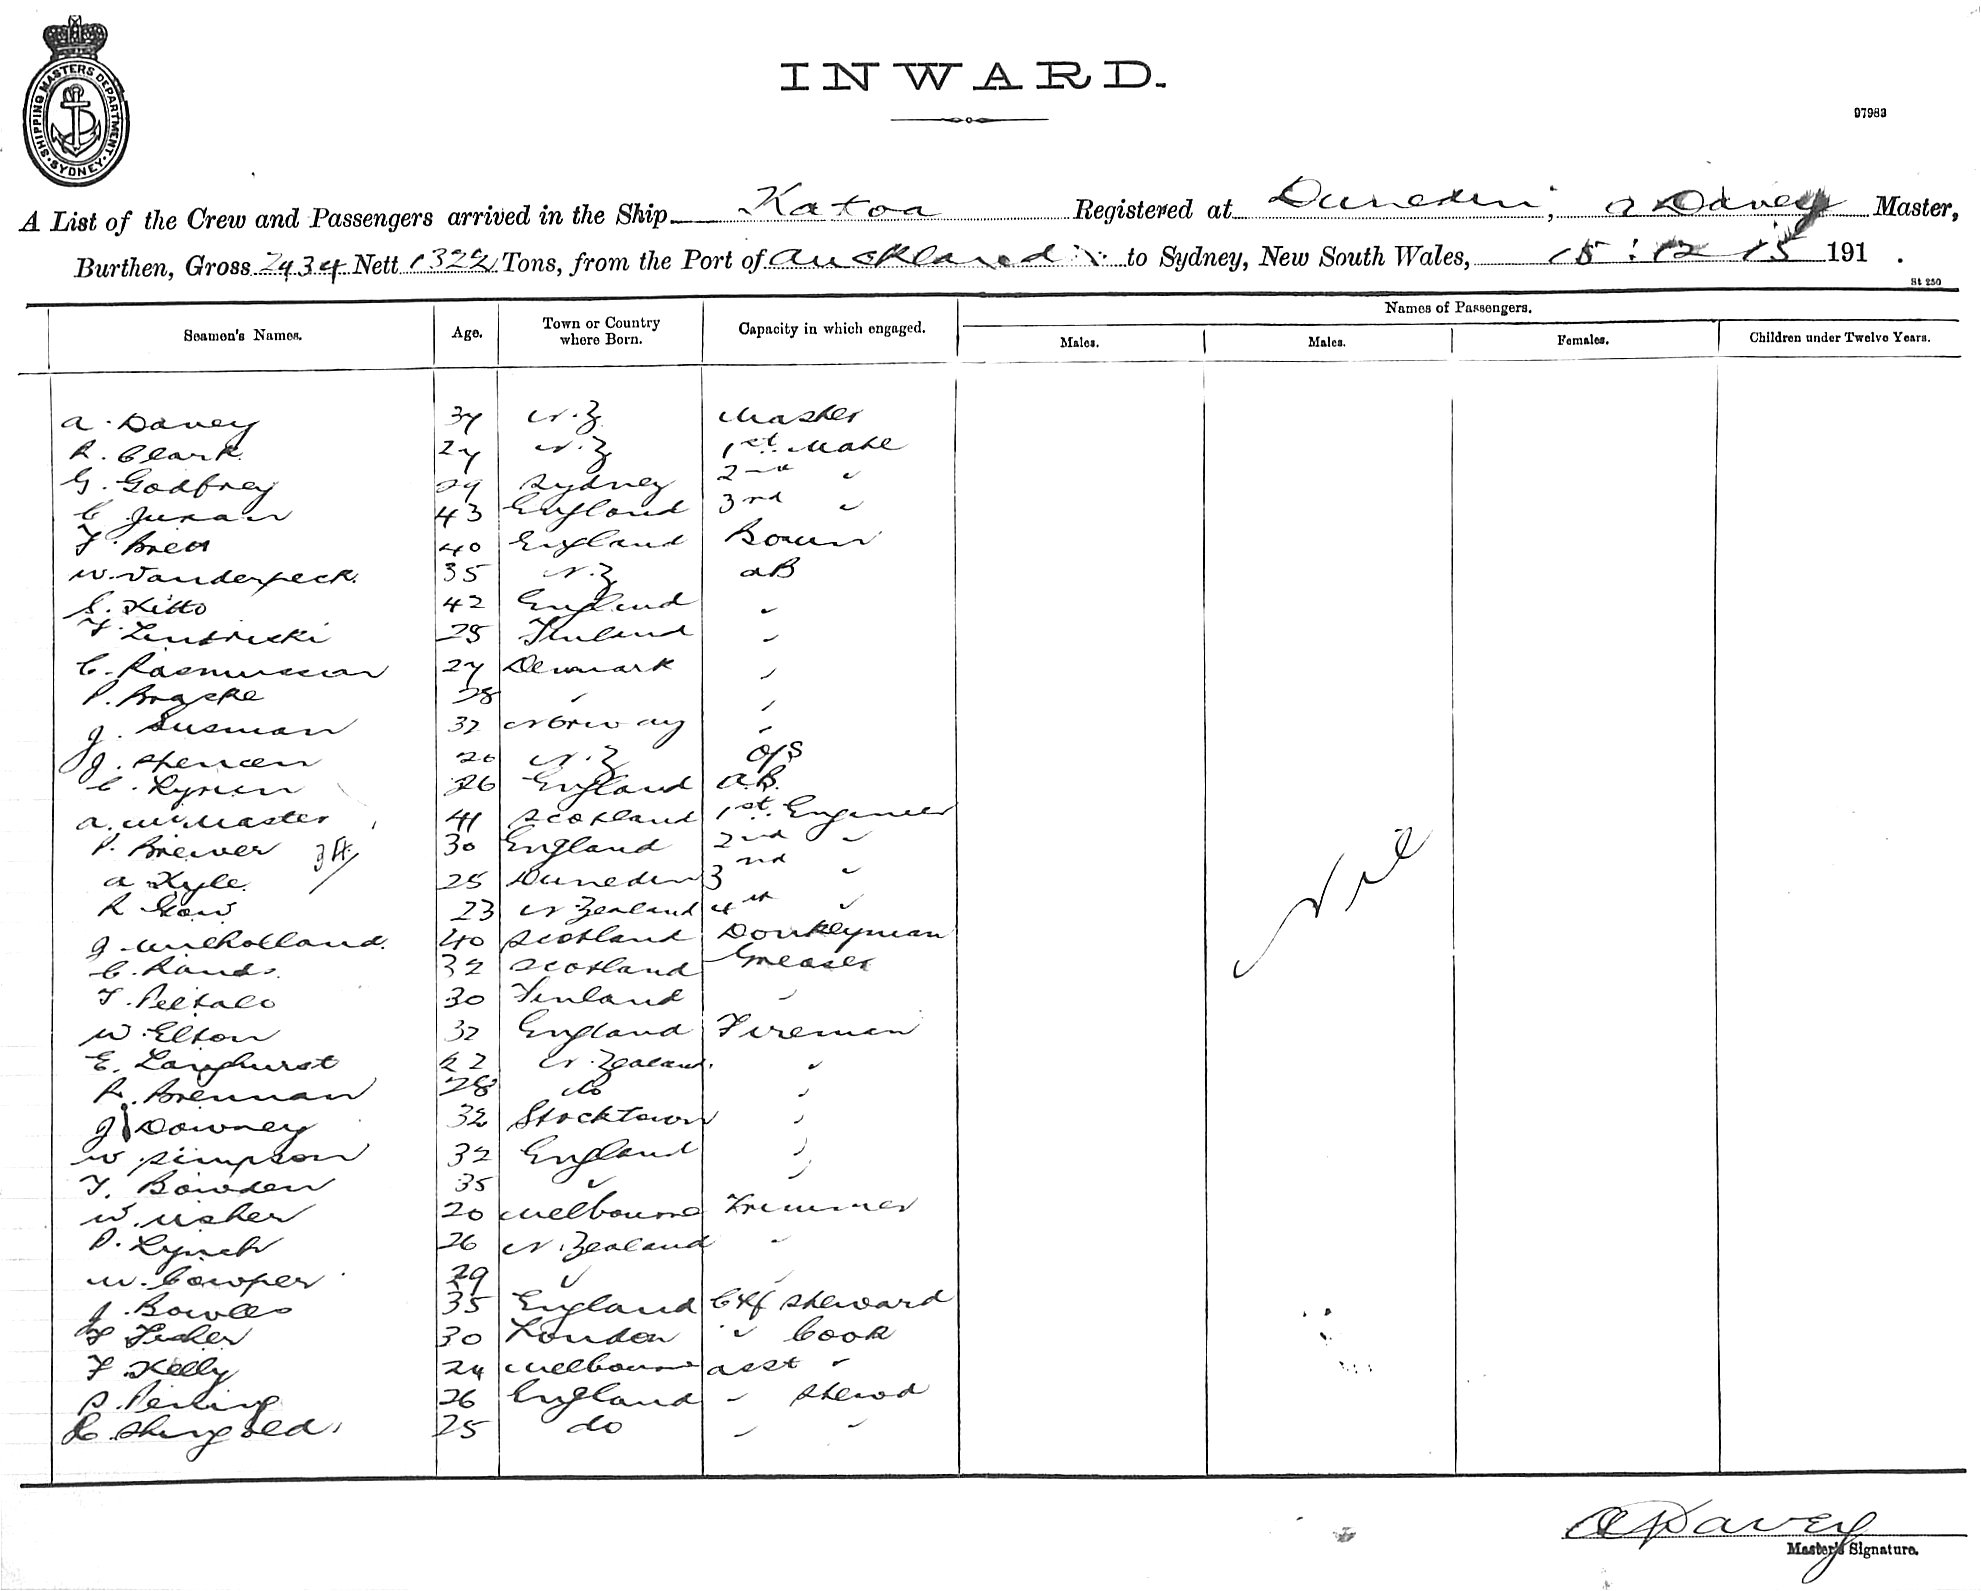 SHIPPING MASTERS DEPARTMENT. SYDNEY.
INWARD.
97983
A List of the Crew and Passengers arrived in the Ship Katoa Registered at Dunedin, A Davey Master,
Burthen, Gross 2434 Nett 1322 Tons, from the Port of Auckland to Sydney, New South Wales, 15:12 15 191 .
St 250
Seamen's Names. Age. Town or Country where Born. Capacity in which engaged. Names of Passengers.
Males. Males. Females. Children under Twelve Years.
A. Davey 37 N.Z Master
R. Clark 27 N.Z 1st Mate
G. Godfrey 29 Sydney 2nd "
C 43 England 3rd "
F. Brett 40 England Bosun
W. Vanderpeck. 35 N.Z AB
S. Kitto 42 England "
25 Finland "
C. Rasmussen 27 Denmark "
P. 28 " "
J. Susman 32 Norway "
J. Spencer 20 N.Z O/S
C. 26 England A.B.
A. McMaster 41 Scotland 1st Engineer
P. Brewer 30 England 2nd "
A Kyle. 25 Dunedin 3nd "
R Gow 23 N. Zealand 4th "
J. Milholland. 40 Scotland Donkeyman
C. Rands. 32 Scotland Greaser
30 Finland "
W. Elton 32 England Fireman
E. Langhurst 22 N. Zealand. "
R. Brennan 28 do "
J Downey 32 Stocktown "
W Simpson 32 England "
T. Bowden 35 " "
W. Usher 20 Melbourne Trimmer
P. Lynch 26 N. Zealand "
W. Cowper 29 " "
J. Bowles 35 England Chf Steward
F Fisher 30 London " Cook
F Kelly 24 Melbourne Asst "
26 England " Stewd
25 do " "
Nil
A Davey
Master's Signature.